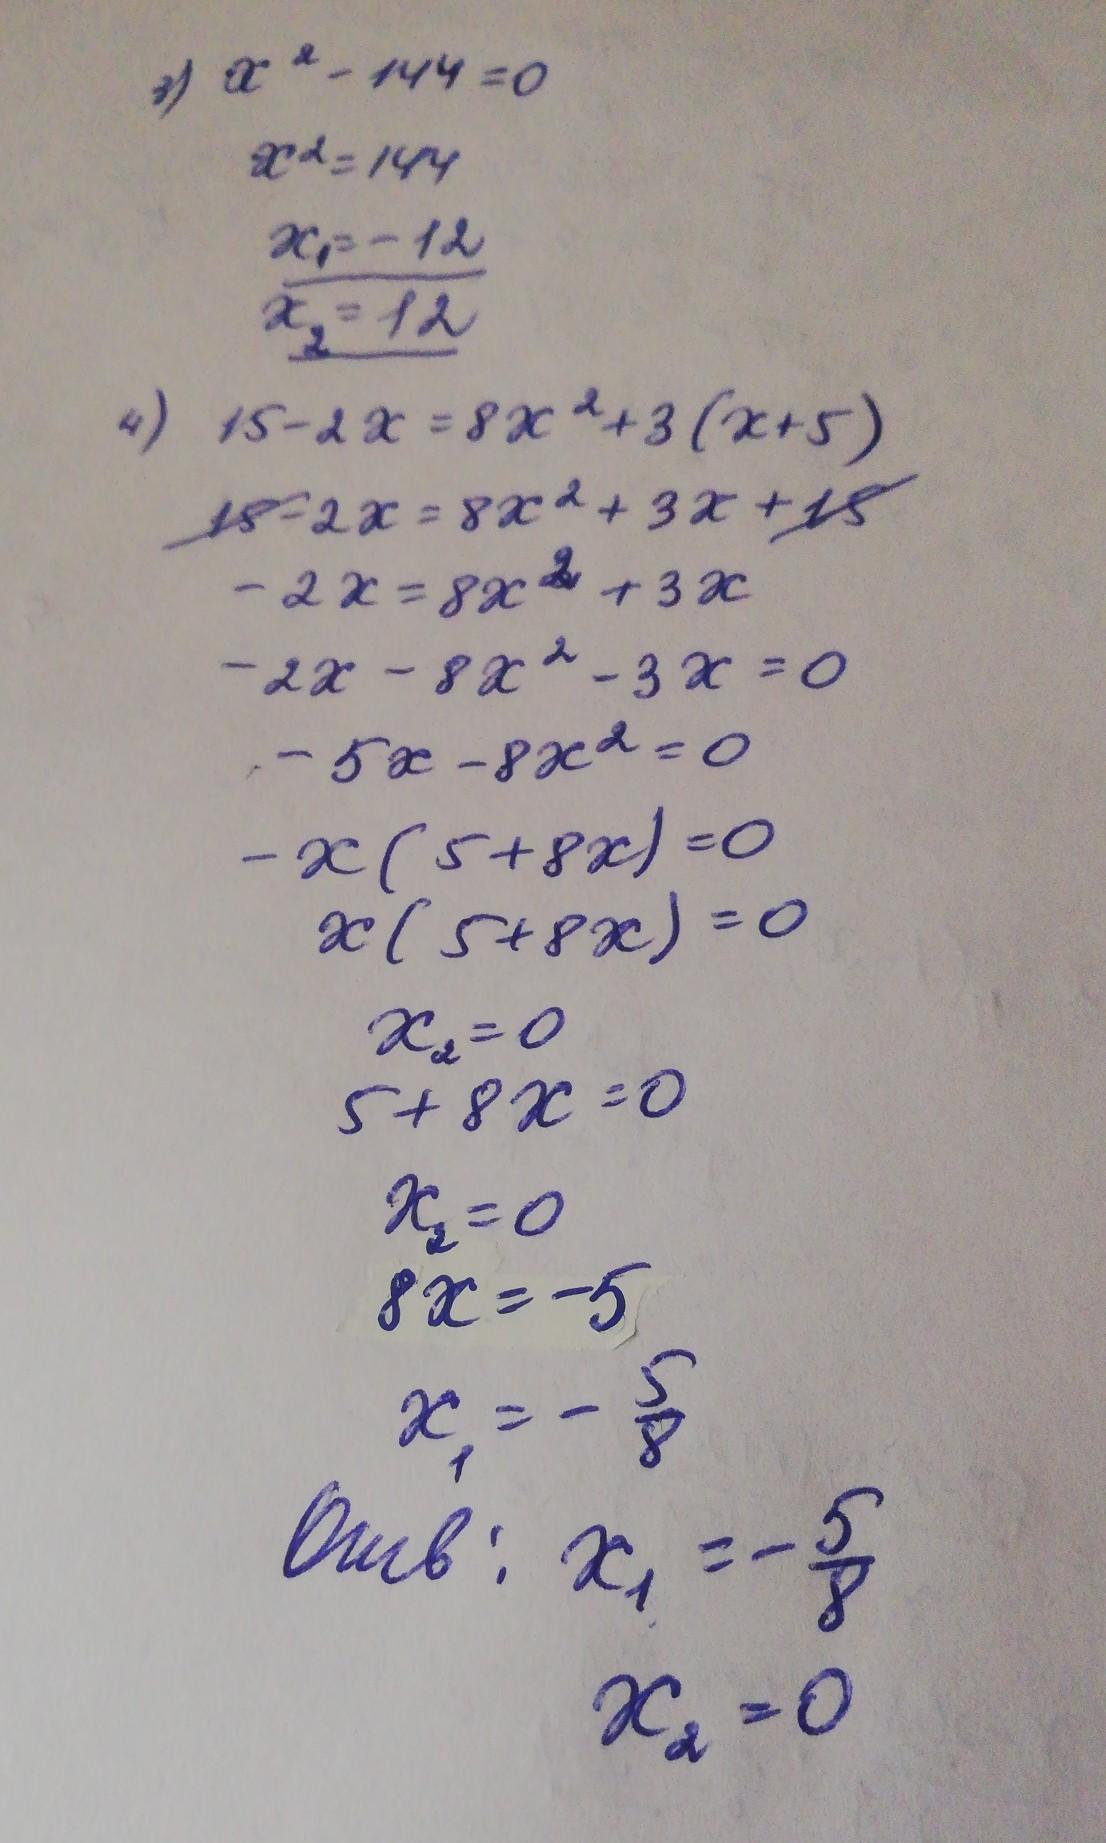 3) x² - 144 = 0
x² = 144
x₁ = -12
x₂ = 12
4) 15 - 2x = 8x² + 3(x+5)
15 - 2x = 8x² + 3x + 15
-2x = 8x² + 3x
-2x - 8x² - 3x = 0
-5x - 8x² = 0
-x(5+8x) = 0
x(5+8x) = 0
x₂ = 0
5 + 8x = 0
x₂ = 0
8x = -5
x₁ = -5/8
Отв: x₁ = -5/8
x₂ = 0